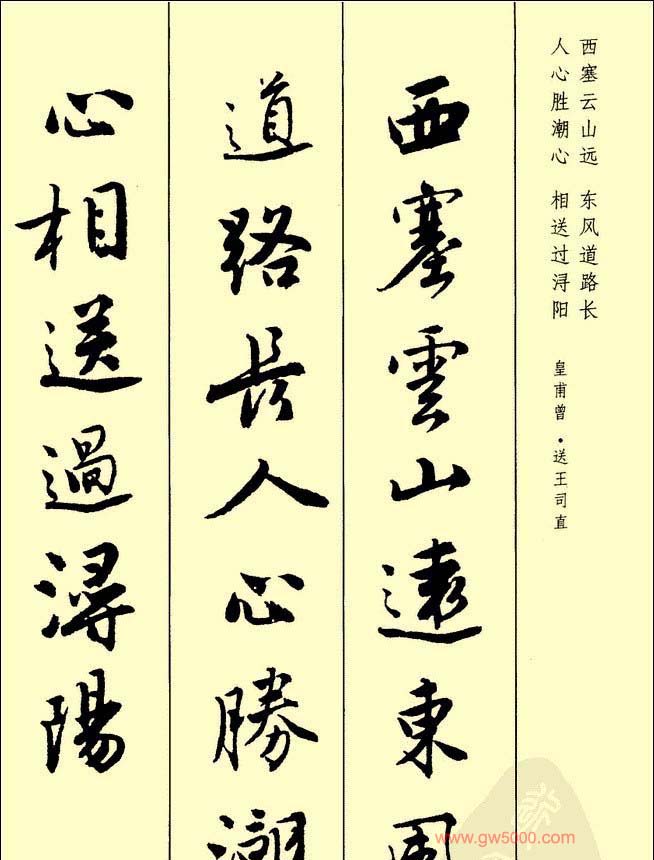 西塞云山远 东风道路长
人心胜潮心 相送过浔阳 皇甫曾·送王司直
西塞雲山遠東風
道路長人心勝潮
心相送過潯陽
www.gw5000.com